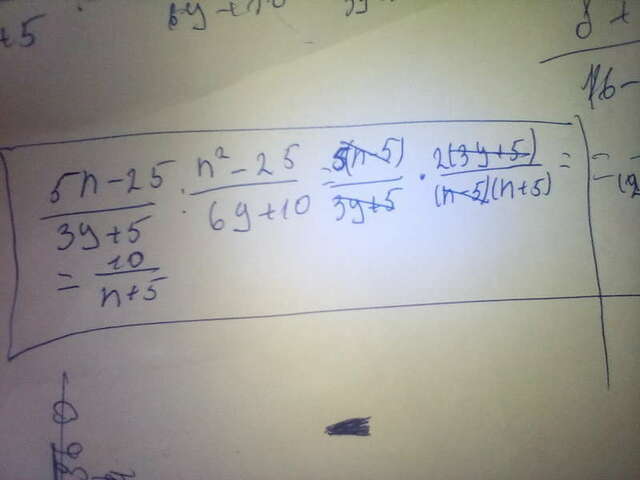 +5
6y+10
8+
16-
5n-25/3y+5 : n²-25/6y+10 = 5(n-5)/3y+5 · 2(3y+5)/(n-5)(n+5) =
= 10/n+5
=